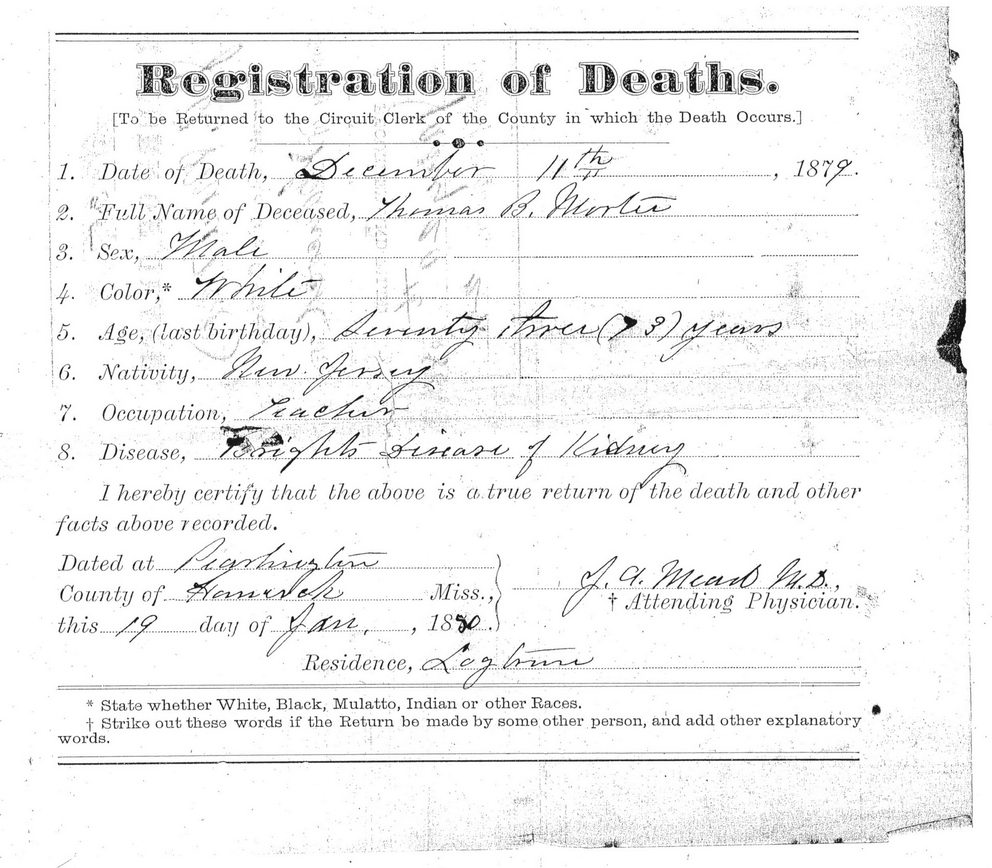 Registration of Deaths.
[To be Returned to the Circuit Clerk of the County in which the Death Occurs.]
1. Date of Death, December 11th, 1879.
2. Full Name of Deceased, Thomas B.
3. Sex, Male
4. Color,* White
5. Age, (last birthday), Seventy three (73) years
6. Nativity, New Jersey
7. Occupation, Teacher
8. Disease, Brights Disease of Kidney
I hereby certify that the above is a true return of the death and other
facts above recorded.
Dated at Pearlington
County of Hancock Miss.,
J. A. Mead M.D.,
† Attending Physician.
this 19 day of Jan, , 1880.
Residence, Logtown
* State whether White, Black, Mulatto, Indian or other Races.
† Strike out these words if the Return be made by some other person, and add other explanatory
words.